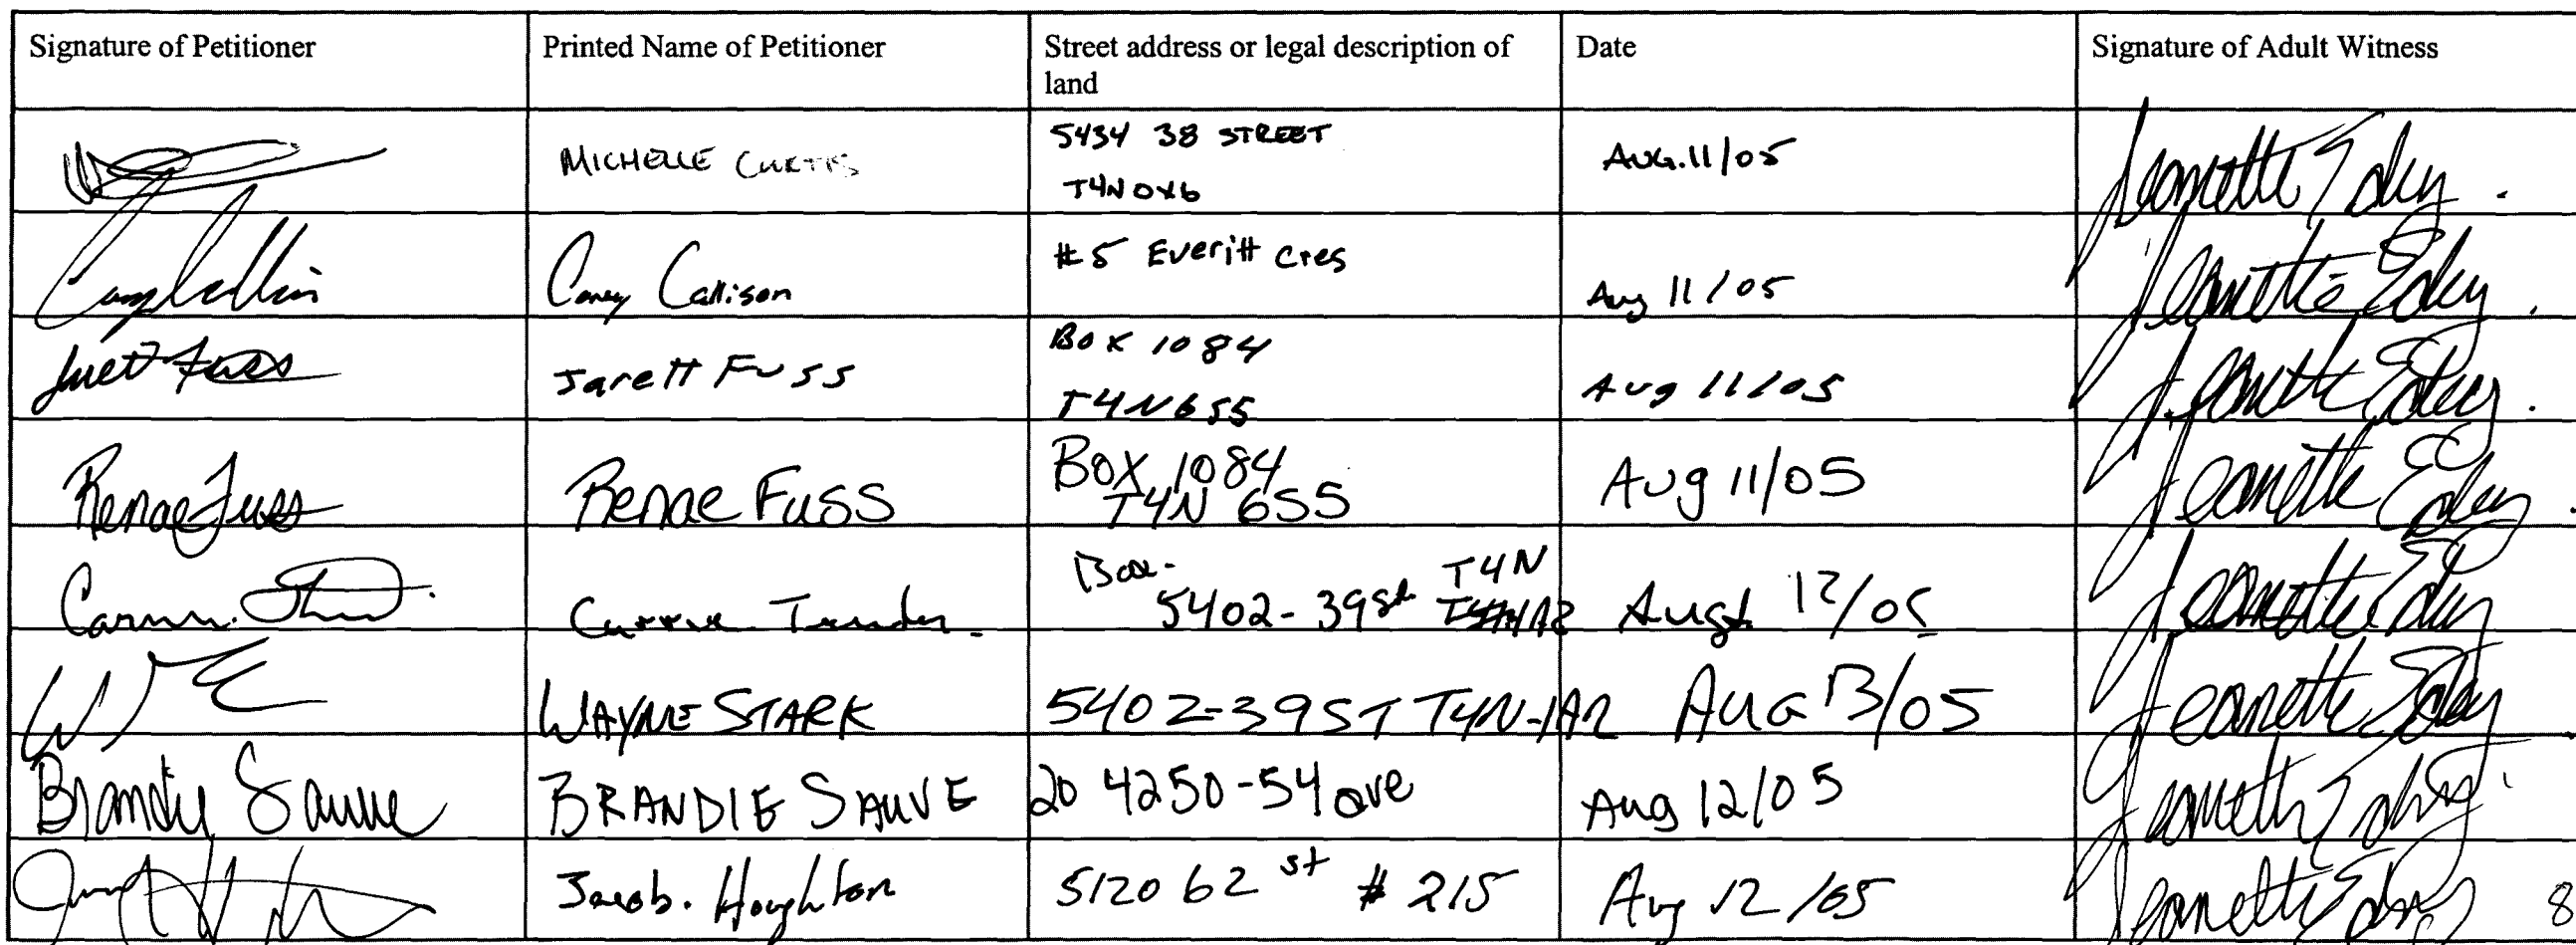 Signature of Petitioner
Printed Name of Petitioner
Street address or legal description of
land
Date
Signature of Adult Witness
MICHELLE CURTIS
5434 38 STREET
T4N 0X6
AUG. 11/05
Jeanette Edey.
Carey Callison
#5 Everitt Cres
Aug 11/05
Jeanette Edey.
Jarett Fuss
Jarett Fuss
Box 1084
T4N6S5
Aug 11/05
Jeanette Edey.
Renae Fuss
Renae Fuss
BOX 1084
T4N 6S5
Aug 11/05
Jeanette Edey.
Box-
T4N
5402-39st
Augst 12/05
Jeanette Edey
WAYNE STARK
5402-39ST T4N-1A2
AUG 13/05
Jeanette Edey
Brandie Sauve
BRANDIE SAUVE
20 4250-54 ave
Aug 12/05
Jeanette Edey
Jacob. Houghton
5120 62 st # 215
Aug 12/05
Jeanette Edey
8